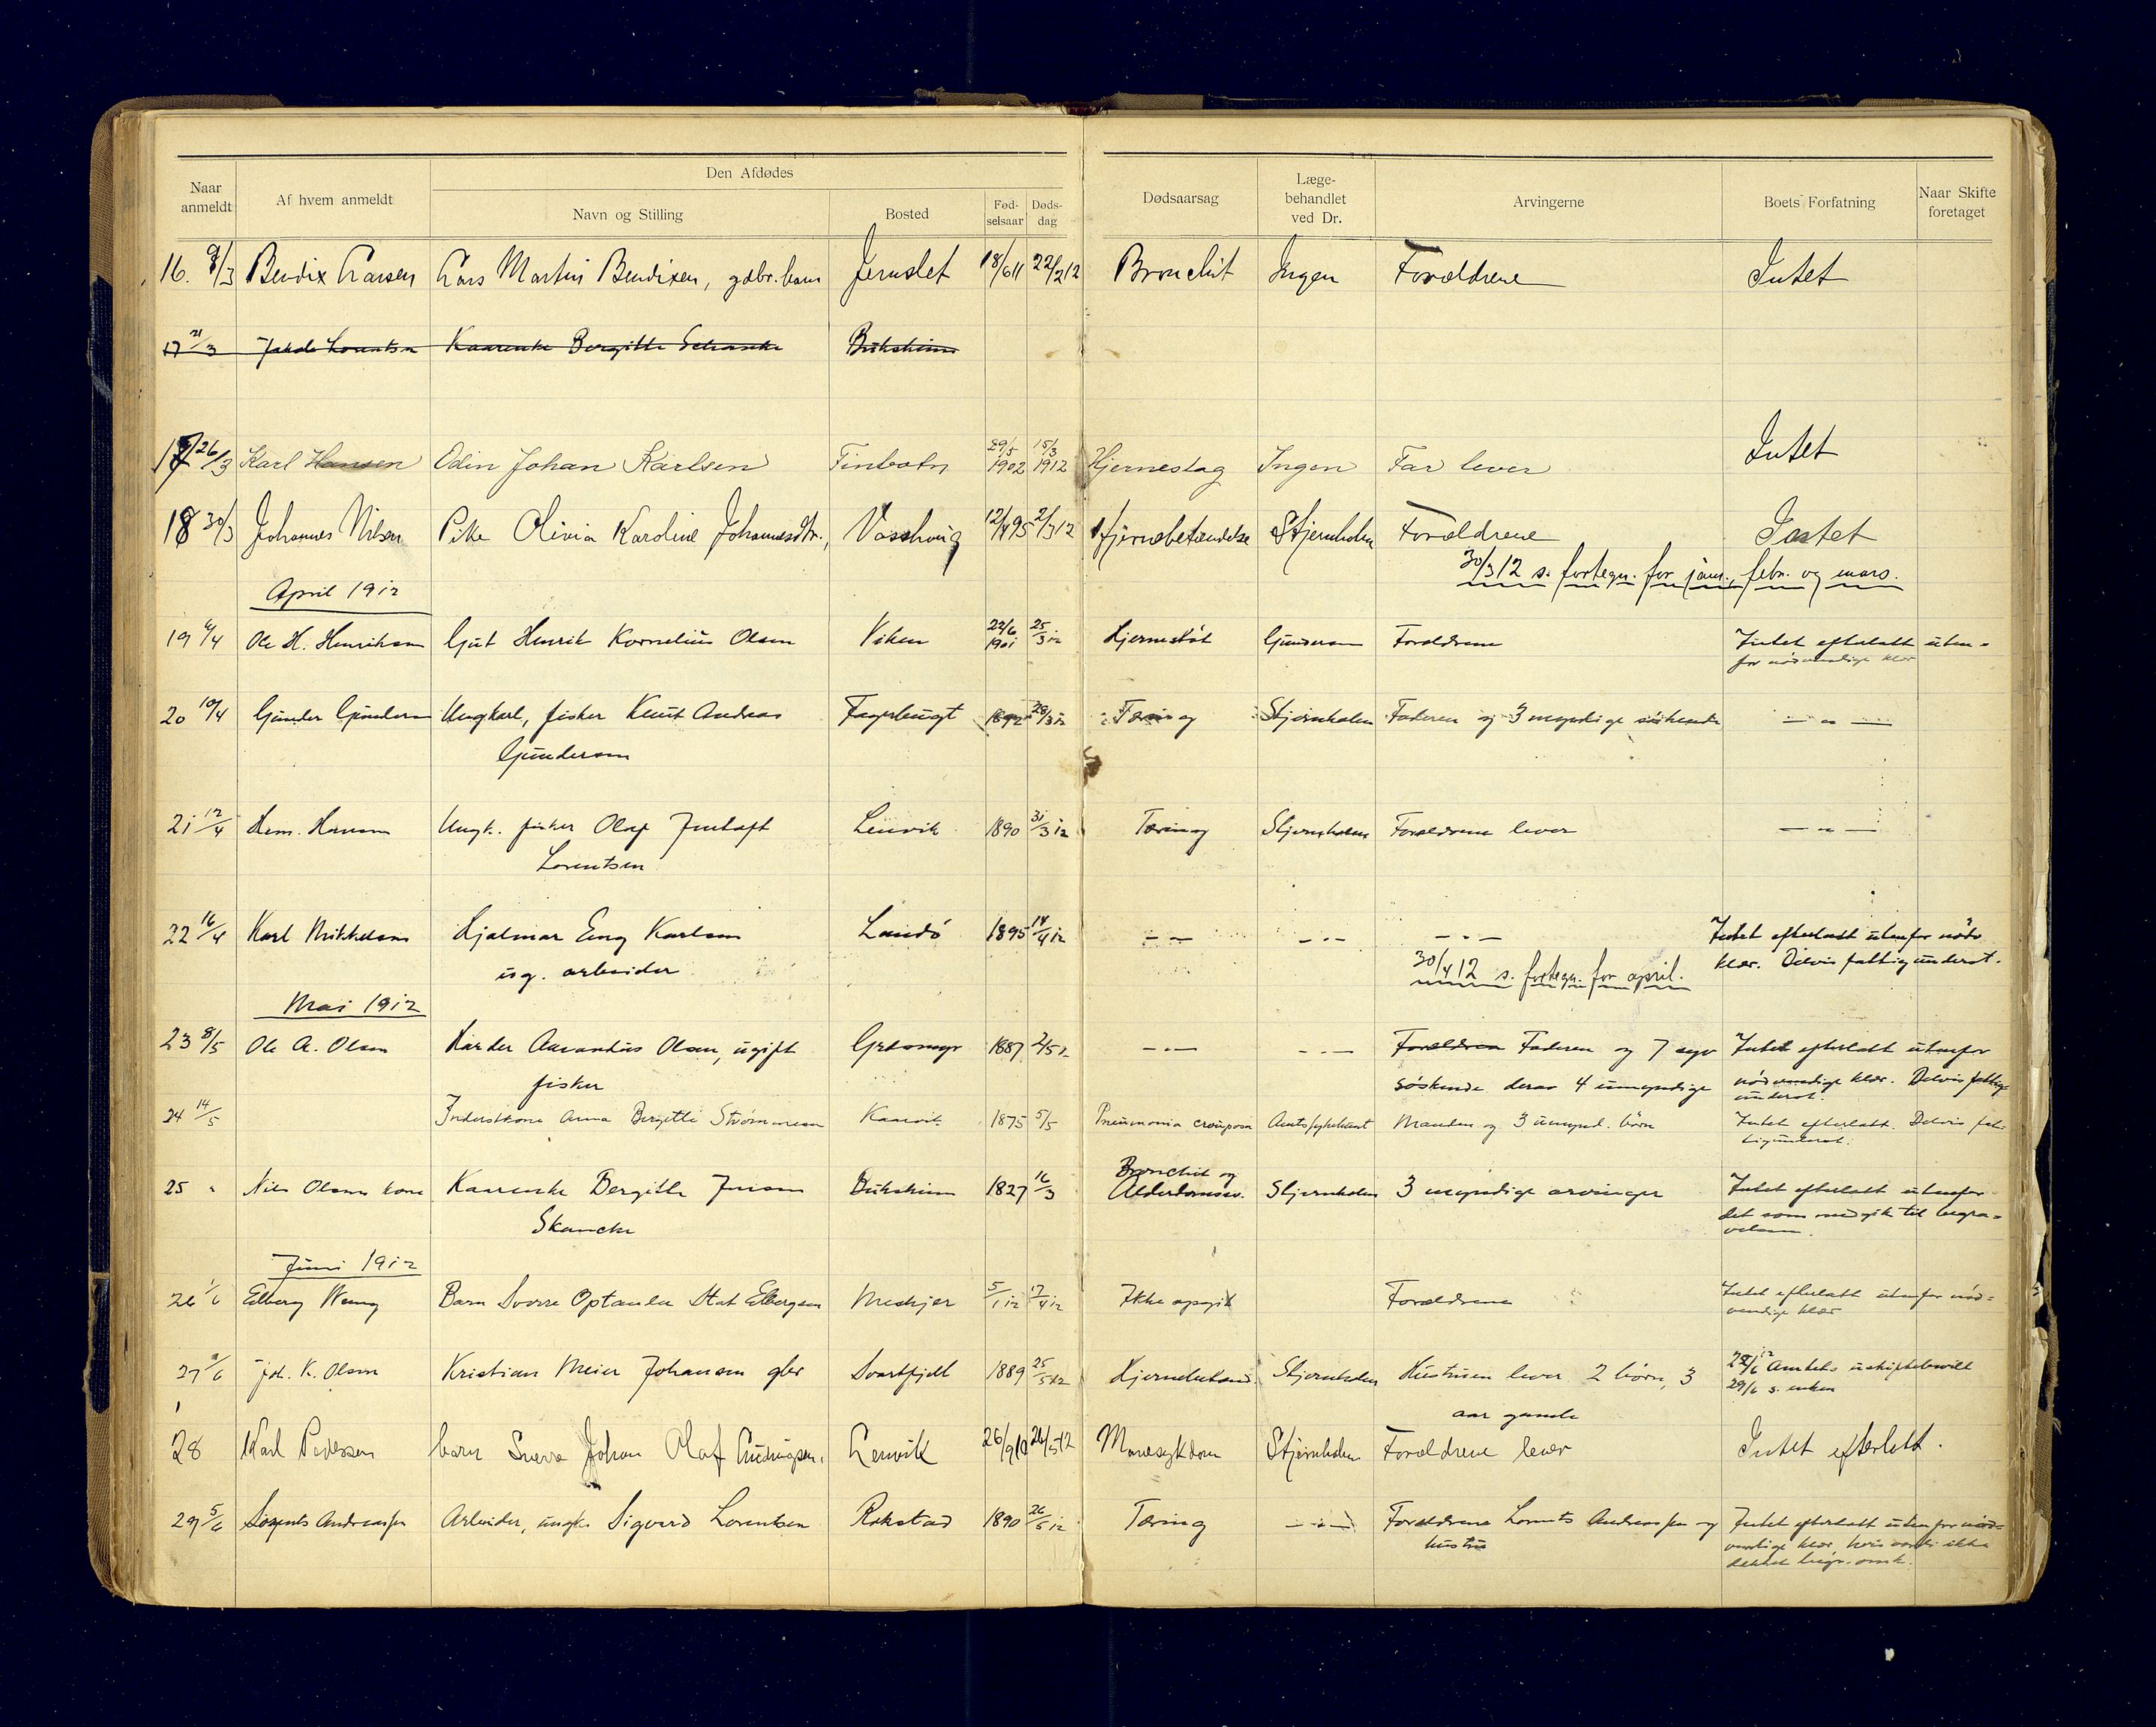 Naar anmeldt | Af hvem anmeldt | Den Afdødes | Dødsaarsag | Læge-behandlet ved Dr. | Arvingerne | Boets Forfatning | Naar Skifte foretaget
Navn og Stilling | Bosted | Fød-selsaar | Døds-dag
16. 9/3 Bendix Larsen Lars Martin Bendixen, gdbr. barn Jernslet 18/6 11 22/2 12 Bronchit Ingen Forældrene Intet
17 21/3 Jakob Lorentsen Kaarenke Bergitte Schancke Bukskinn
17 26/3 Karl Hansen Odin Johan Karlsen Finbotn 29/5 1902 15/3 1912 Hjerneslag Ingen Far lever Intet
18 30/3 Johannes Nilsen Pike Olivia Karoline Johannesdtr., Vasshaug 12/4 95 2/3 12 Hjernebetændelse Stjernholm Forældrene Intet
30/3 12 s. fortegn. for jan., febr. og mars.
April 1912
19 6/4 Ole H. Henriksen Gut Henrik Kornelius Olsen Viken 22/6 1901 25/3 12 Gundersen Forældrene Intet efterlatt uten-
for nødvendige klær
20 10/4 Gunder Gundersen Ungkarl, fisker Knut Andreas Fagerbugt 1892 28/3 12 Tæring Stjernholm Faderen og 3 myndige søskende — „ —
Gundersen
21 12/4 Hem. Hansen Ungk. fisker Olaf Lenvik 1890 31/3 12 Tæring Stjernholm Forældrene lever — „ —
Lorentsen
22 16/4 Karl Mikkelsen Hjalmar Eng Karlsen Landø 1895 14/4 12 — „ — — „ — — „ — Intet efterlatt utenfor nødv.
ug. arbeider klær. Delvis fattigunderst.
30/4 12 s. fortegn. for april.
Mai 1912
23 8/5 Ole A. Olsen Olsen, ugift 1887 2/5 12 — „ — — „ — Forældrene Faderen og 7 Intet efterlatt utenfor
fisker søskende derav 4 umyndige nødvendige klær. Delvis fattig-
underst.
24 14/5 Inderstkone Anna Bergitte Strømmesen Kaarvik 1875 5/5 Pneumonia crouposa Amtssykehuset Manden og 3 umynd. børn Intet efterlatt. Delvis fat-
tigunderst.
25 „ Nils Olsens kone Kaarenke Bergitte Jensen Bukskinn 1827 16/3 Bronchit og
Alderdomssv. Stjernholm 3 myndige arvinger Intet efterlatt utenfor
Skancke det som medgik til begra-
velsen.
Juni 1912
26 1/6 Elberg Weng Barn Sverre Elbergsen Meskjer 5/1 12 17/4 12 Ikke opgit Forældrene Intet efterlatt utenfor nød-
vendige klær
27 /6 Joh. K. Olsen Kristian Meier Johansen gbr Svartfjell 1889 25/5 12 Stjernholm Hustruen lever 2 børn, 3 Amtets uskiftebevill
aar gamle 29/6 s. enken
28 Karl Pedersen barn Sverre Johan Olaf Lenvik 26/9 10 26/5 12 Mavesykdom Stjernholm Forældrene lever Intet efterlatt.
29 5/6 Lorents Andreassen Arbeider, ungk. Sigvard Lorentsen Rokstad 1890 26/5 12 Tæring — „ — Forældrene Lorents Andreassen og Intet efterlatt utenfor nød-
hustru vendige klær, hvis værdi ikke
dekket begr. omk.